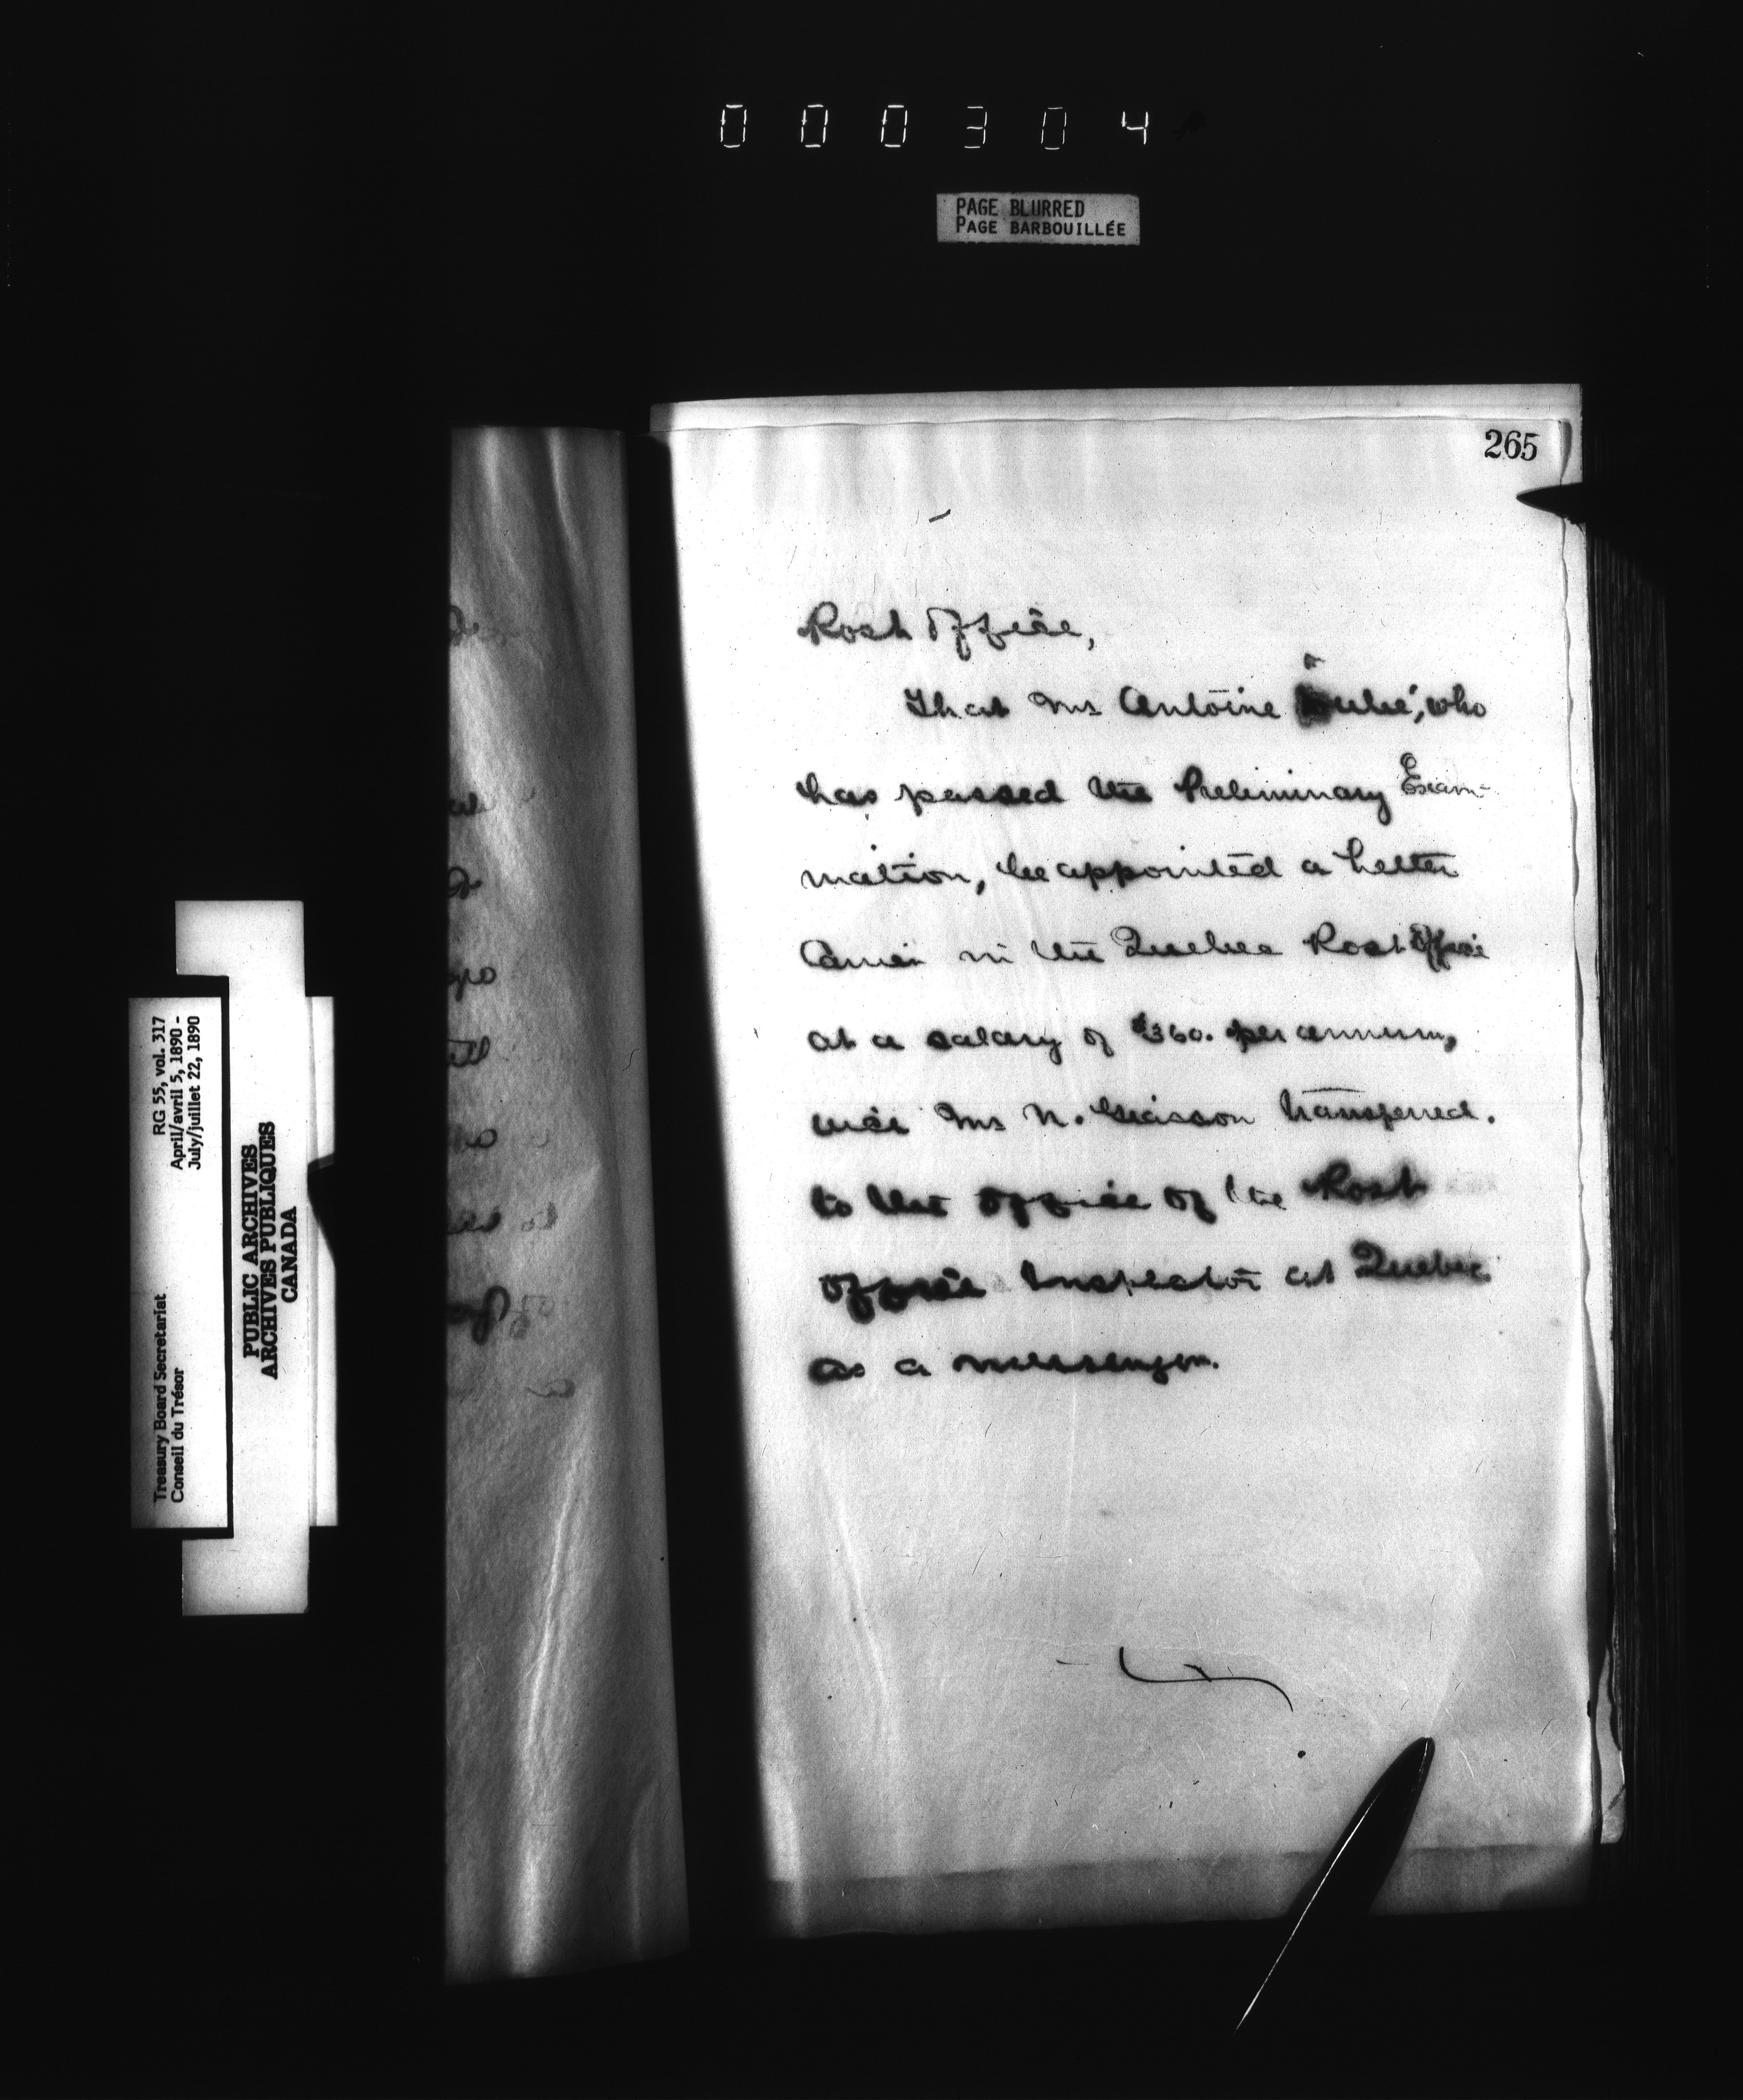 000304
PAGE BLURRED
PAGE BARBOUILLÉE
265
Post Office,
That Mr Antoine Dubé, who
has passed the Preliminary Exam-
ination, be appointed a Letter
Carrier in the Quebec Post Office
at a salary of $360. per annum,
vice Mr N. Giasson transferred.
to the office of the Post
office Inspector at Quebec
as a messenger.
RG 55, vol. 317
April/avril 5, 1890 -
July/juillet 22, 1890
Treasury Board Secretariat
Conseil du Trésor
PUBLIC ARCHIVES
ARCHIVES PUBLIQUES
CANADA